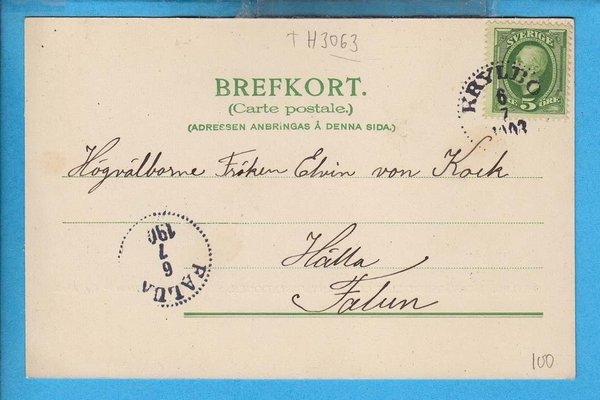 † H3063
SVERIGE
5 ÖRE
KRYLBO
6
7
1903
BREFKORT.
(Carte postale.)
(ADRESSEN ANBRINGAS Å DENNA SIDA.)
Högvälborne Fröken Elvin von Kock
Hälla
Falun
FALUN
6
7
190
100